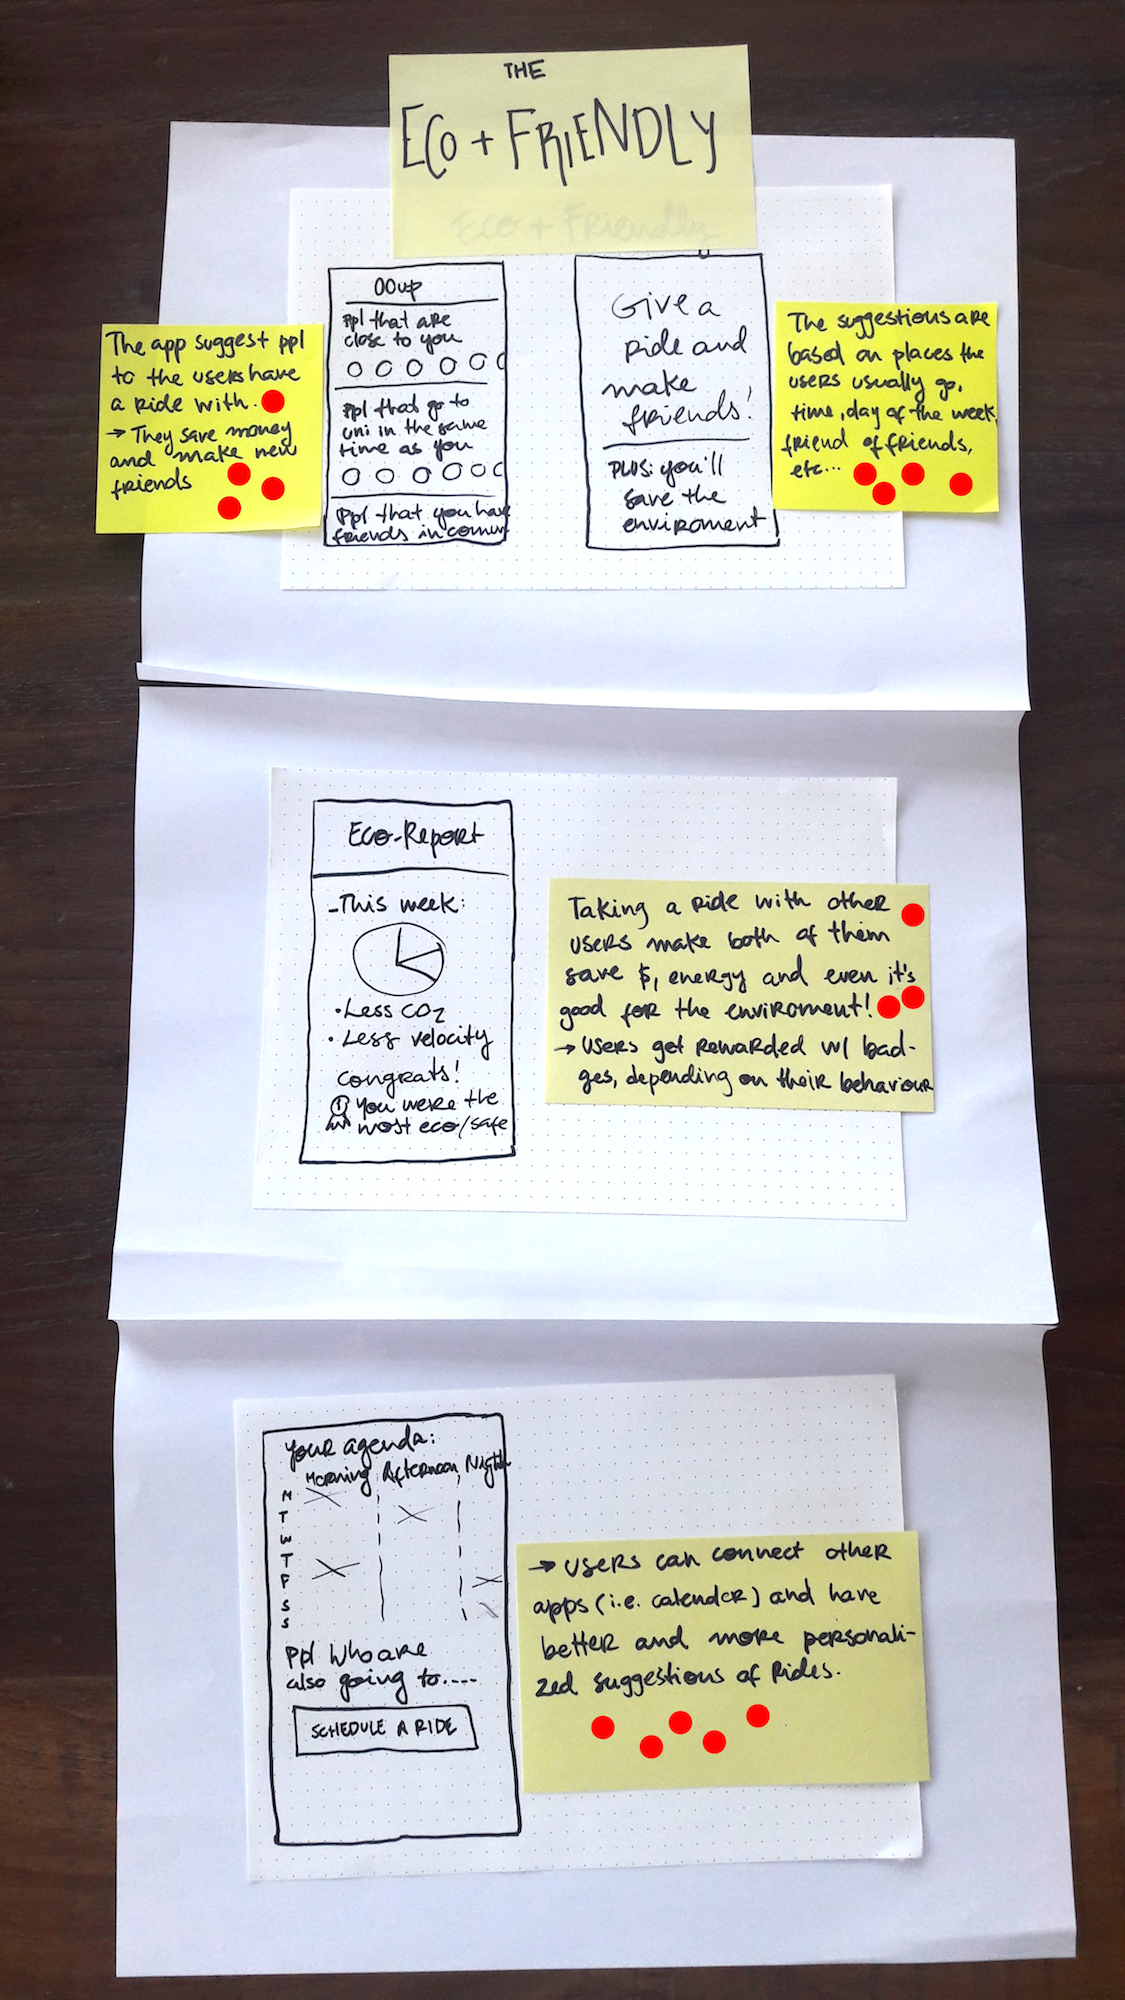 THE
ECO + FRIENDLY
Eco + Friendly
The app suggest ppl
to the users have
a ride with.
→ They save money
and make new
friends
OOup
ppl that are
close to you
ppl that go to
uni in the same
time as you
ppl that you have
friends in comun
Give a
ride and
make
friends!
PLUS: you'll
save the
enviroment
The suggestions are
based on places the
users usually go,
time, day of the week,
friend of friends,
etc...
Eco-Report
-This week:
• Less CO2
• Less velocity
congrats!
1 You were the
most eco/safe
Taking a ride with other
users make both of them
save $, energy and even it's
good for the enviroment!
→ users get rewarded w/ bad-
ges, depending on their behaviour
Your agenda:
Morning Afternoon Night
M
T
W
T
F
S
S
Ppl who are
also going to....
SCHEDULE A RIDE
→ users can connect other
apps (i.e. calender) and have
better and more personali-
zed suggestions of rides.